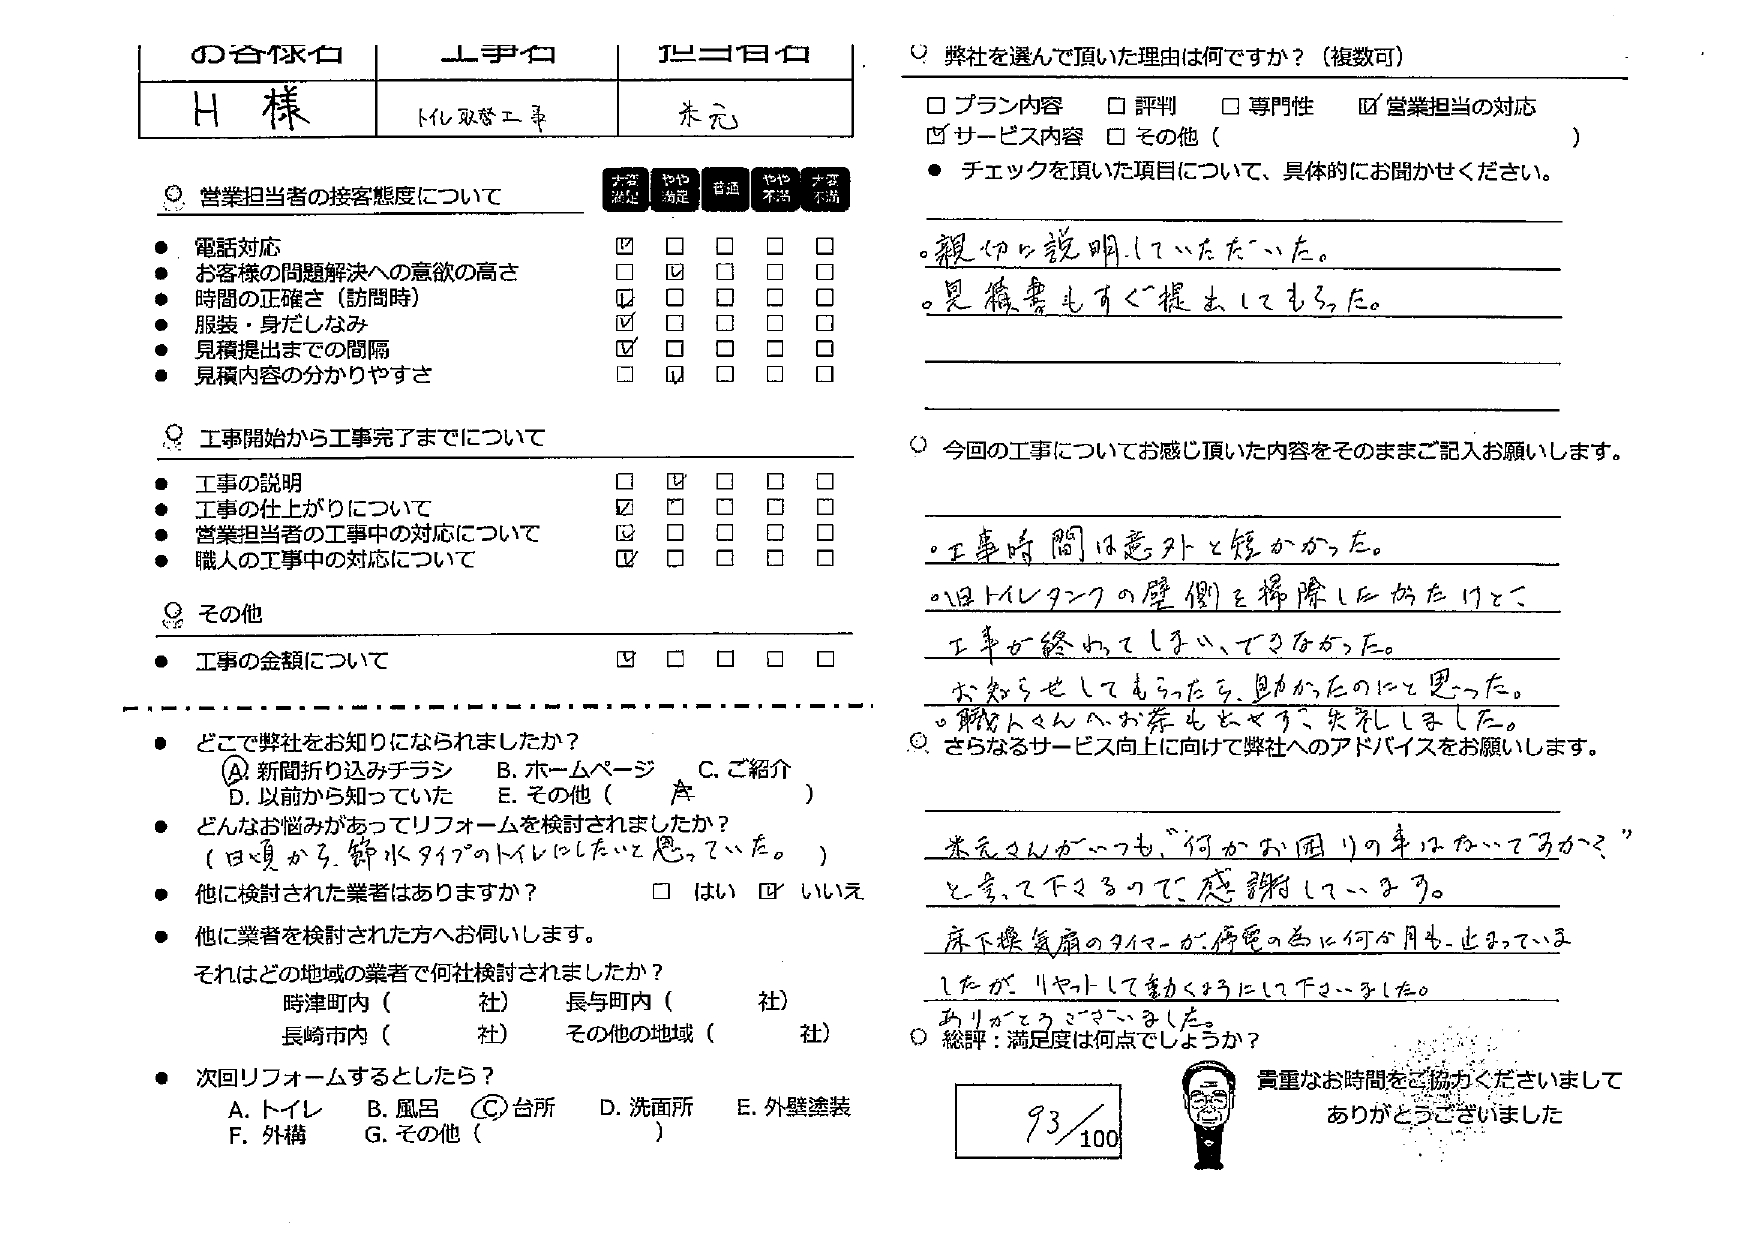 お客様名 工事名 担当者名
H 様 トイレ取替工事 米元
営業担当者の接客態度について
大変満足 やや満足 普通 やや不満 大変不満
● 電話対応 ☑ □ □ □ □
● お客様の問題解決への意欲の高さ □ ☑ □ □ □
● 時間の正確さ（訪問時） ☑ □ □ □ □
● 服装・身だしなみ ☑ □ □ □ □
● 見積提出までの間隔 ☑ □ □ □ □
● 見積内容の分かりやすさ □ ☑ □ □ □
工事開始から工事完了までについて
● 工事の説明 □ ☑ □ □ □
● 工事の仕上がりについて ☑ □ □ □ □
● 営業担当者の工事中の対応について ☑ □ □ □ □
● 職人の工事中の対応について ☑ □ □ □ □
その他
● 工事の金額について ☑ □ □ □ □
● どこで弊社をお知りになられましたか？
A. 新聞折り込みチラシ B. ホームページ C. ご紹介
D. 以前から知っていた E. その他（ ）
● どんなお悩みがあってリフォームを検討されましたか？
（日頃から、節水タイプのトイレにしたいと思っていた。）
● 他に検討された業者はありますか？ □ はい ☑ いいえ
● 他に業者を検討された方へお伺いします。
それはどの地域の業者で何社検討されましたか？
時津町内（ 社） 長与町内（ 社）
長崎市内（ 社） その他の地域（ 社）
● 次回リフォームするとしたら？
A. トイレ B. 風呂 C. 台所 D. 洗面所 E. 外壁塗装
F. 外構 G. その他（ ）
弊社を選んで頂いた理由は何ですか？（複数可）
□ プラン内容 □ 評判 □ 専門性 ☑ 営業担当の対応
☑ サービス内容 □ その他（ ）
● チェックを頂いた項目について、具体的にお聞かせください。
。親切に説明していただいた。
。見積書もすぐ提出してもらった。
今回の工事についてお感じ頂いた内容をそのままご記入お願いします。
。工事時間は意外と短かかった。
。旧トイレタンクの壁側を掃除したかったけど、
工事が終わってしまい、できなかった。
お知らせしてもらったら、助かったのにと思った。
。職人さんへお茶も出せず、失礼しました。
さらなるサービス向上に向けて弊社へのアドバイスをお願いします。
米元さんがいつも、“何かお困りの事はないですか？”
と言って下さるので、感謝しています。
床下換気扇のタイマーが、停電の為に何か月も止まっていま
したが、リセットして動くようにして下さいました。
ありがとうございました。
総評：満足度は何点でしょうか？
93/100
貴重なお時間をご協力くださいまして
ありがとうございました